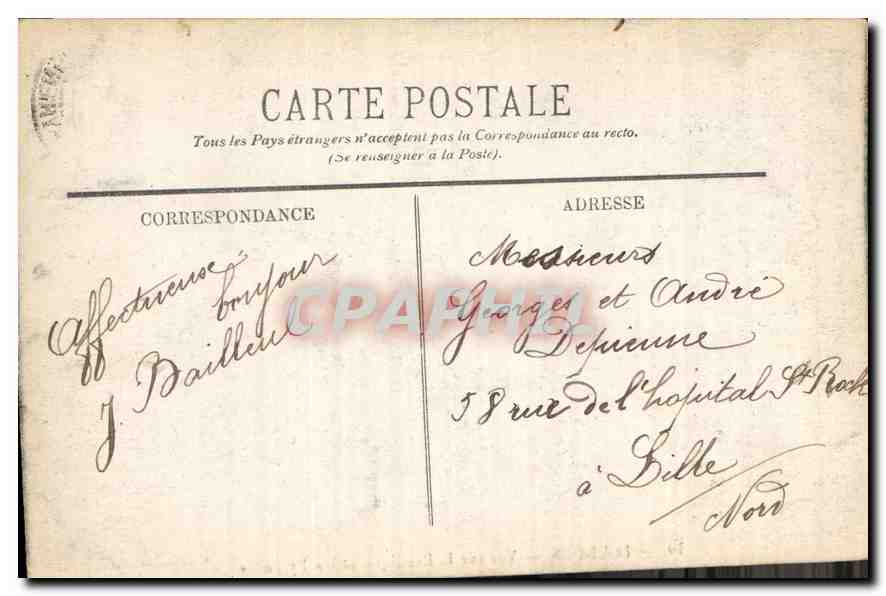 CARTE POSTALE
Tous les Pays étrangers n'acceptent pas la Correspondance au recto.
(Se renseigner à la Poste).
CORRESPONDANCE
Affectueuse
bonjour
J. Bailleul
ADRESSE
Messieurs
Georges et André
Depienne
58 rue de l'hopital St Roch
à Lille
Nord
CPAPHIL